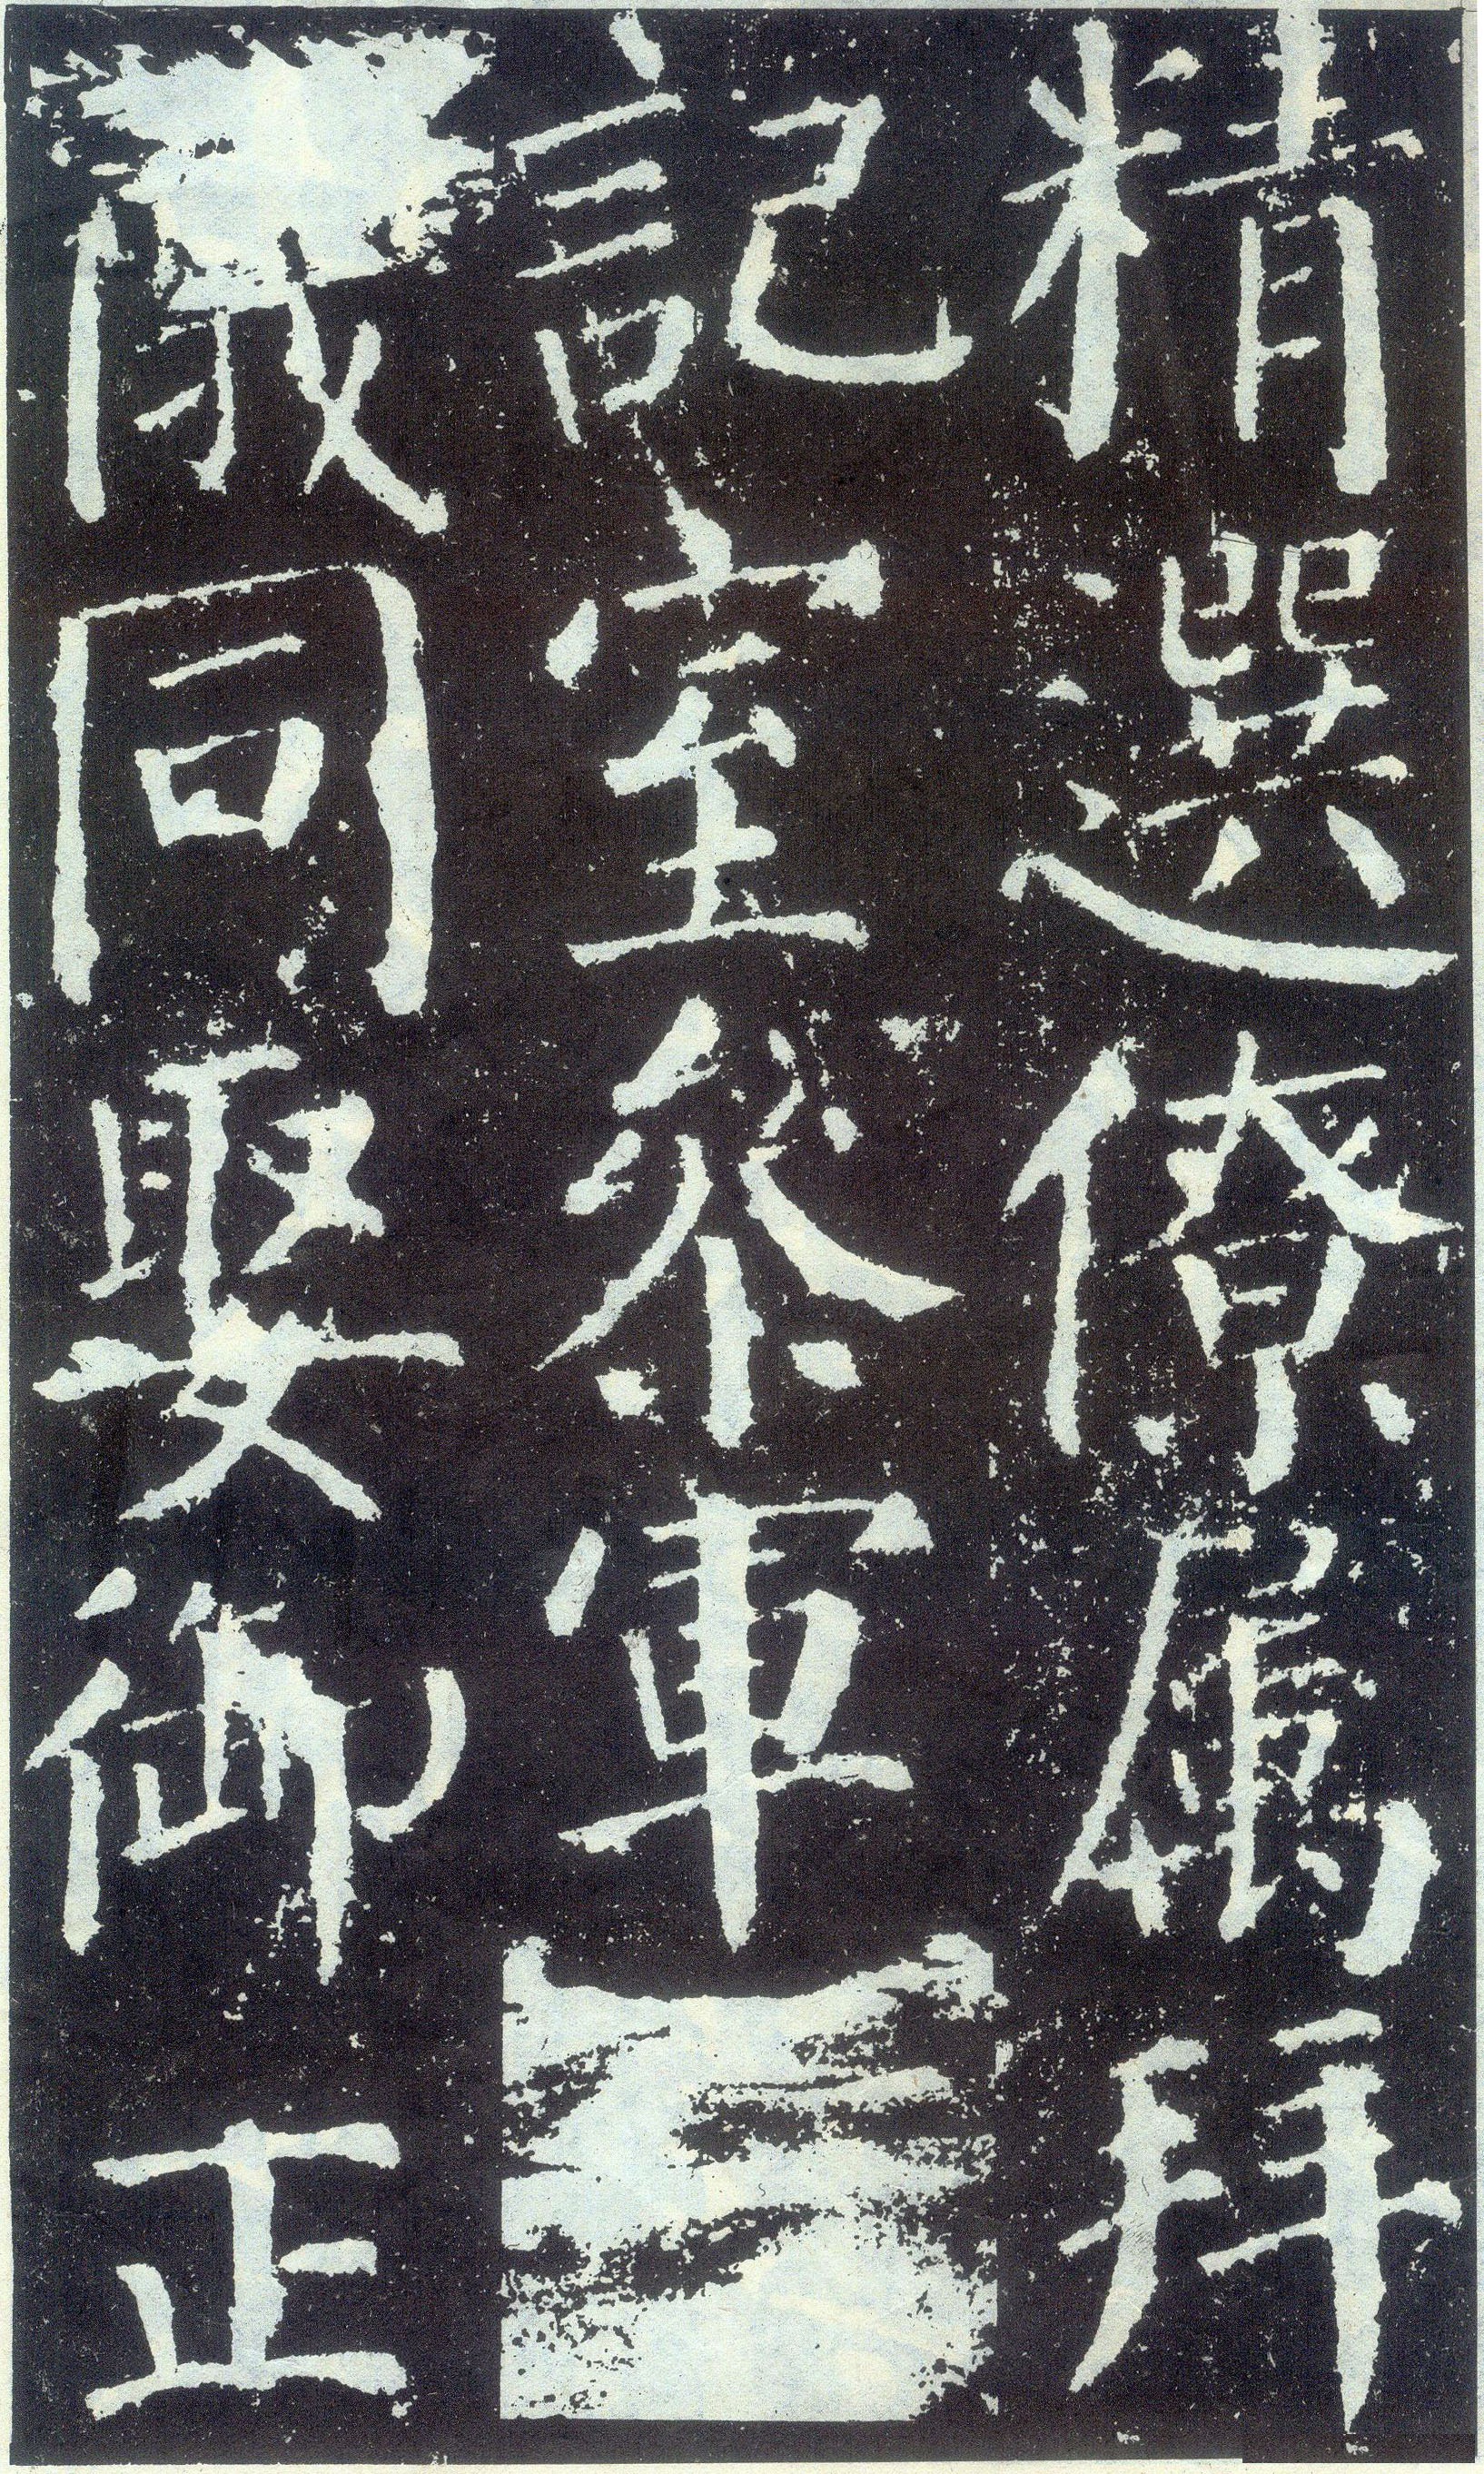 精選僚屬拜
記室參軍
儀同娶御正